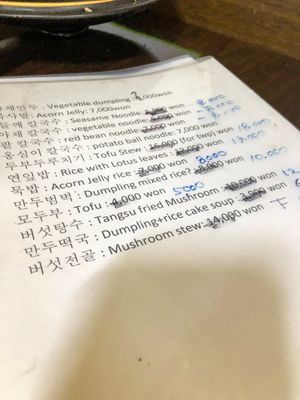 채만두 : Vegetable dumpling : 6,000won
묵사발: Acorn Jelly: 7,000won
들깨 칼국수 : Seasame Noodle: won 8,000
야채 칼국수 : vegetable noodle: won 8,000
팥 칼국수 : red bean noodle: won 8,000
옹심이 칼국수 : potato ball noodle: 7,000 won
두부두루치기 : Tofu Stew : 16,000 (for two) won 18,000
연잎밥 : Rice with Lotus leaves : won 13,000
묵밥 : Acorn Jelly rice : 7,000 won 8000
만두범벅 : Dumpling mixed rice? won 10,000
모두부 : Tofu : 4,000 won 5000
버섯탕수 : Tangsu fried Mushroom : won 12
만두떡국 : Dumpling+rice cake soup : won
버섯전골 : Mushroom stew: 14,000 won